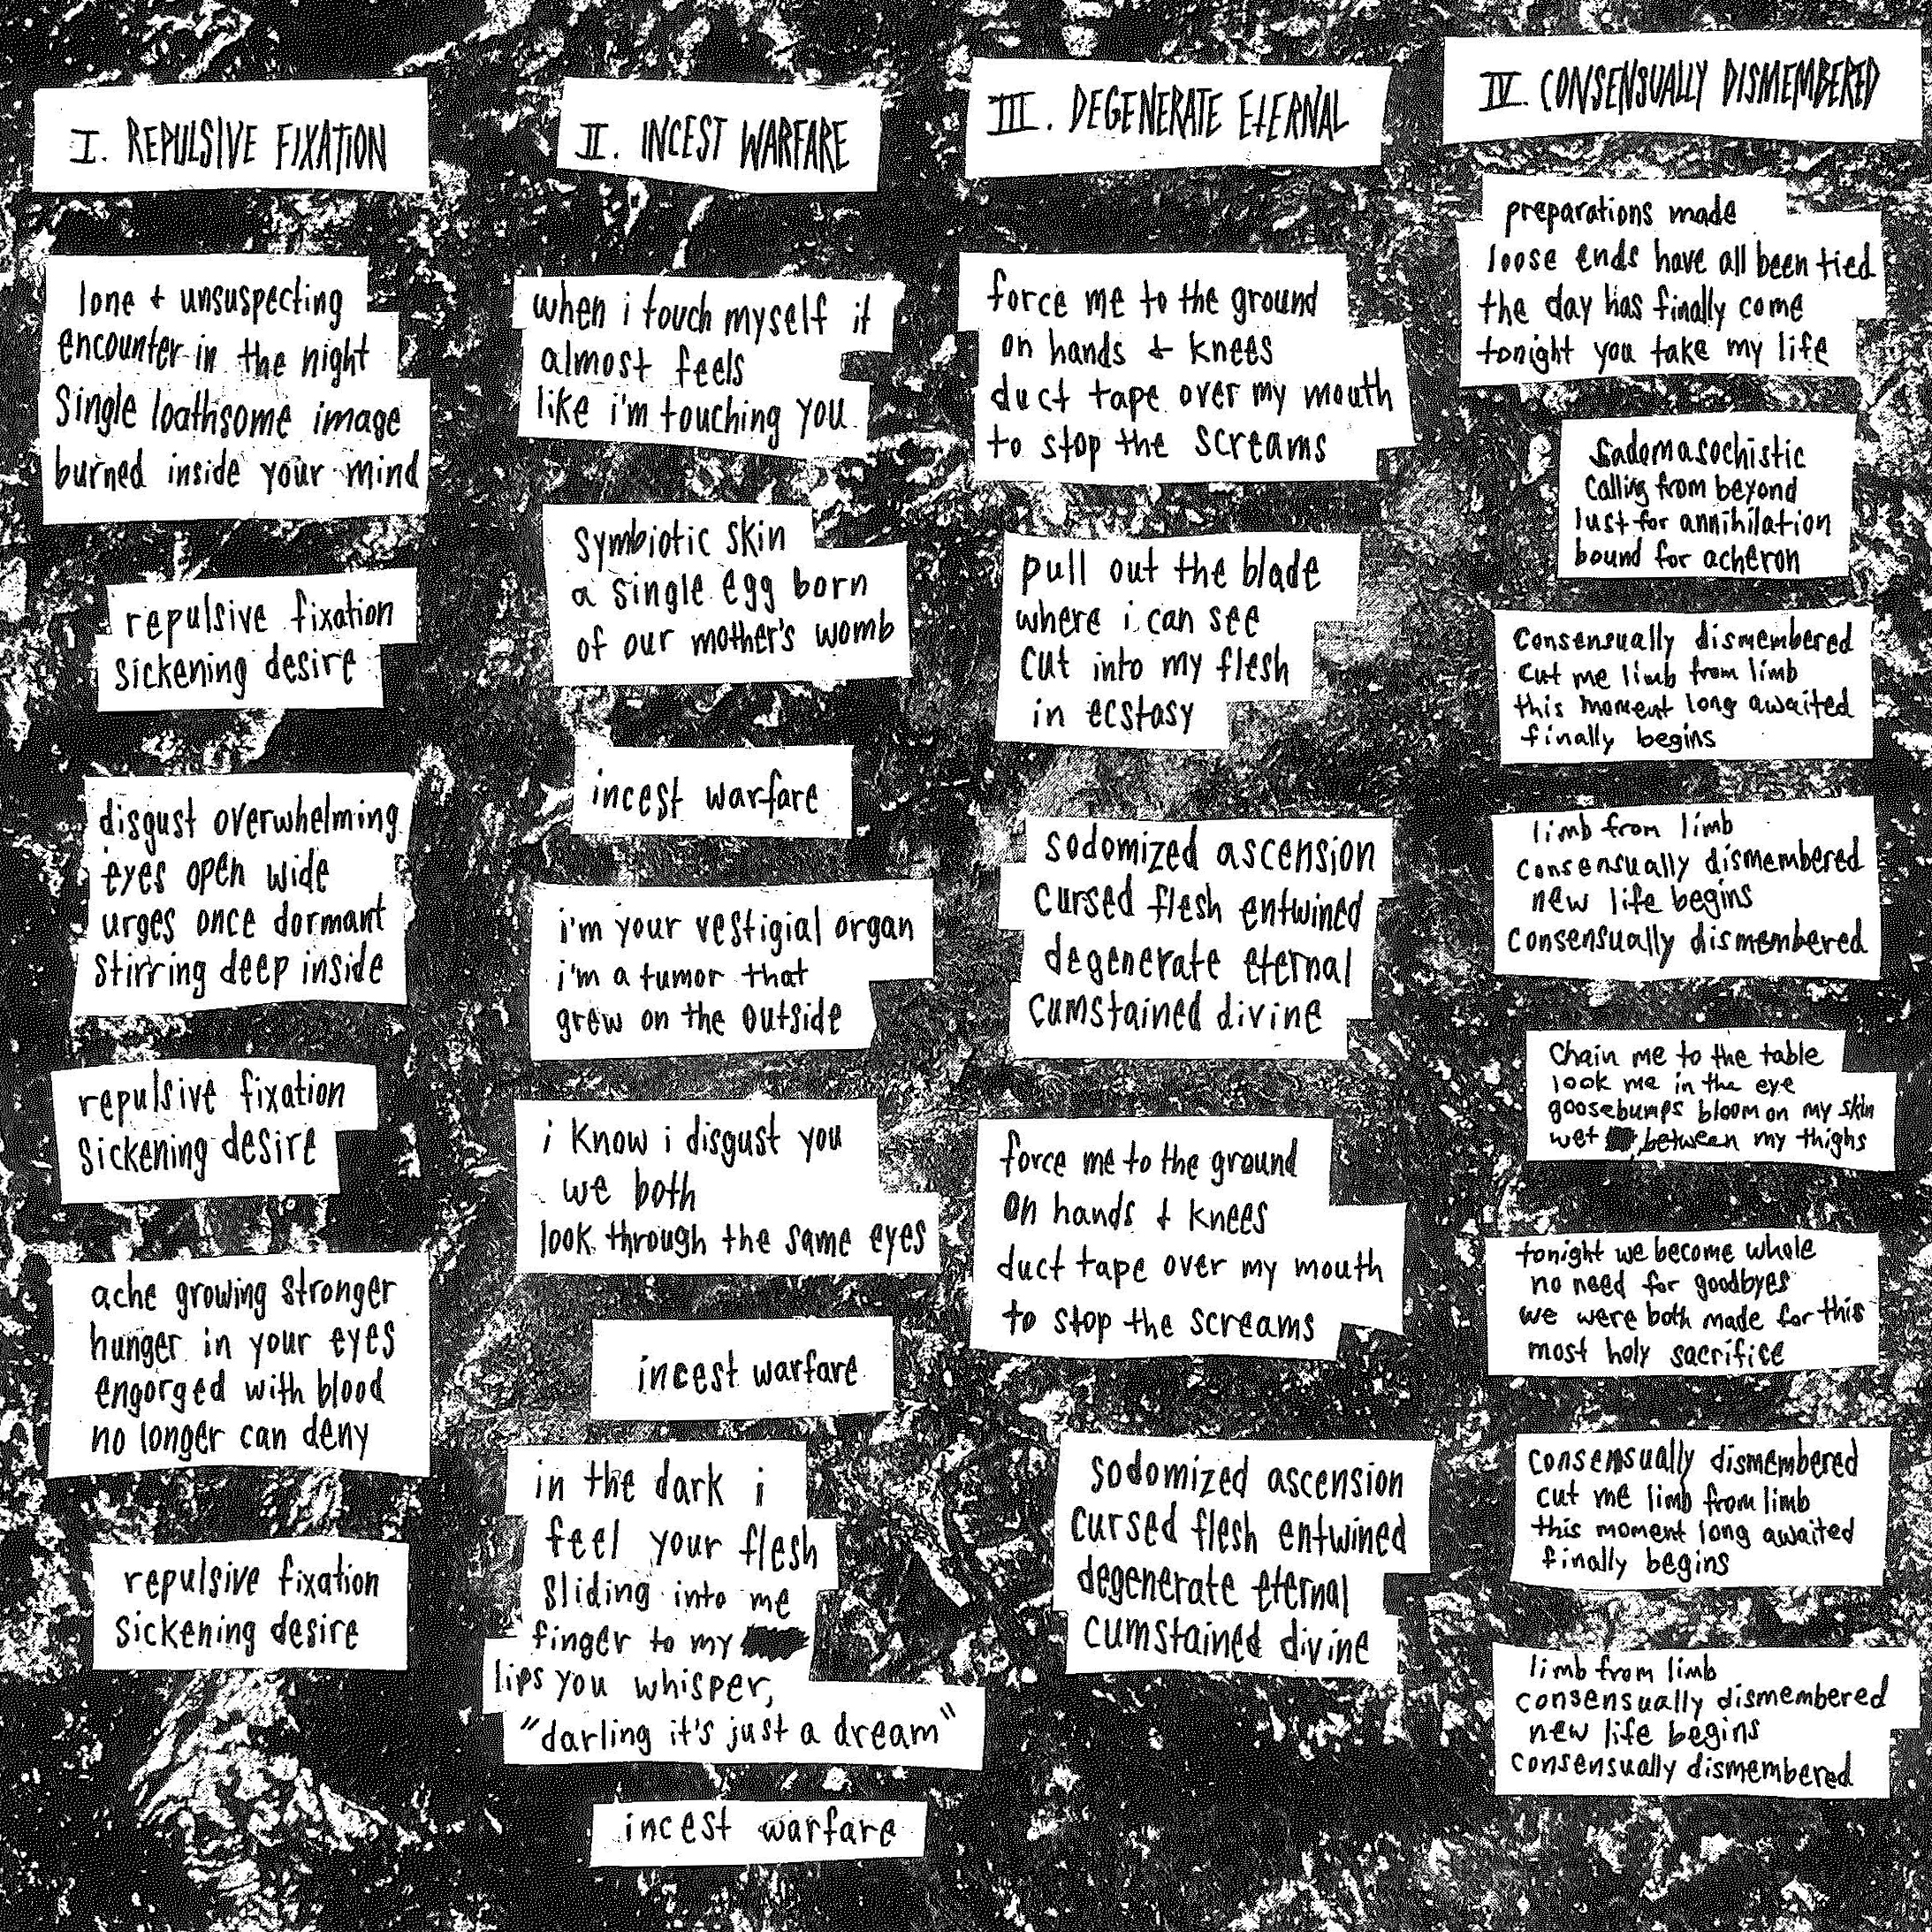 I. REPULSIVE FIXATION
lone & unsuspecting
encounter in the night
single loathsome image
burned inside your mind
repulsive fixation
sickening desire
disgust overwhelming
eyes open wide
urges once dormant
stirring deep inside
repulsive fixation
sickening desire
ache growing stronger
hunger in your eyes
engorged with blood
no longer can deny
repulsive fixation
sickening desire
II. INCEST WARFARE
when i touch myself it
almost feels
like i'm touching you
symbiotic skin
a single egg born
of our mother's womb
incest warfare
i'm your vestigial organ
i'm a tumor that
grew on the outside
i know i disgust you
we both
look through the same eyes
incest warfare
in the dark i
feel your flesh
sliding into me
finger to my
lips you whisper,
"darling it's just a dream"
incest warfare
III. DEGENERATE ETERNAL
force me to the ground
on hands & knees
duct tape over my mouth
to stop the screams
pull out the blade
where i can see
cut into my flesh
in ecstasy
sodomized ascension
cursed flesh entwined
degenerate eternal
cumstained divine
force me to the ground
on hands & knees
duct tape over my mouth
to stop the screams
sodomized ascension
cursed flesh entwined
degenerate eternal
cumstained divine
IV. CONSENSUALLY DISMEMBERED
preparations made
loose ends have all been tied
the day has finally come
tonight you take my life
sadomasochistic
calling from beyond
lust for annihilation
bound for acheron
consensually dismembered
cut me limb from limb
this moment long awaited
finally begins
limb from limb
consensually dismembered
new life begins
consensually dismembered
chain me to the table
look me in the eye
goosebumps bloom on my skin
wet between my thighs
tonight we become whole
no need for goodbyes
we were both made for this
most holy sacrifice
consensually dismembered
cut me limb from limb
this moment long awaited
finally begins
limb from limb
consensually dismembered
new life begins
consensually dismembered